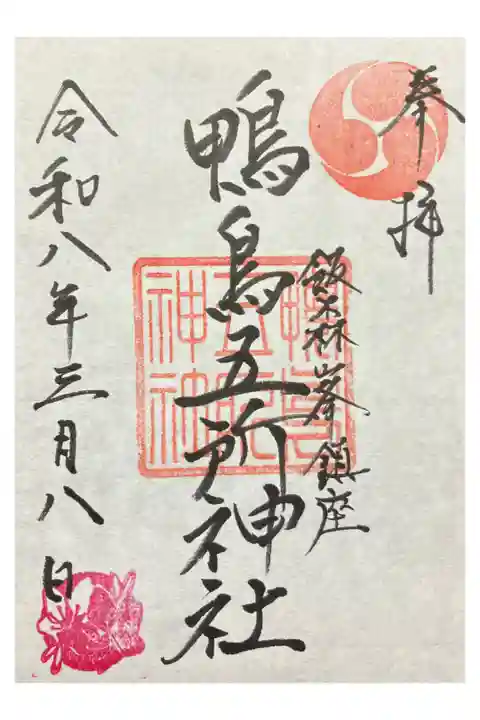 奉拝
飯森峯鎮座
鴨鳥五所神社
令和八年三月八日